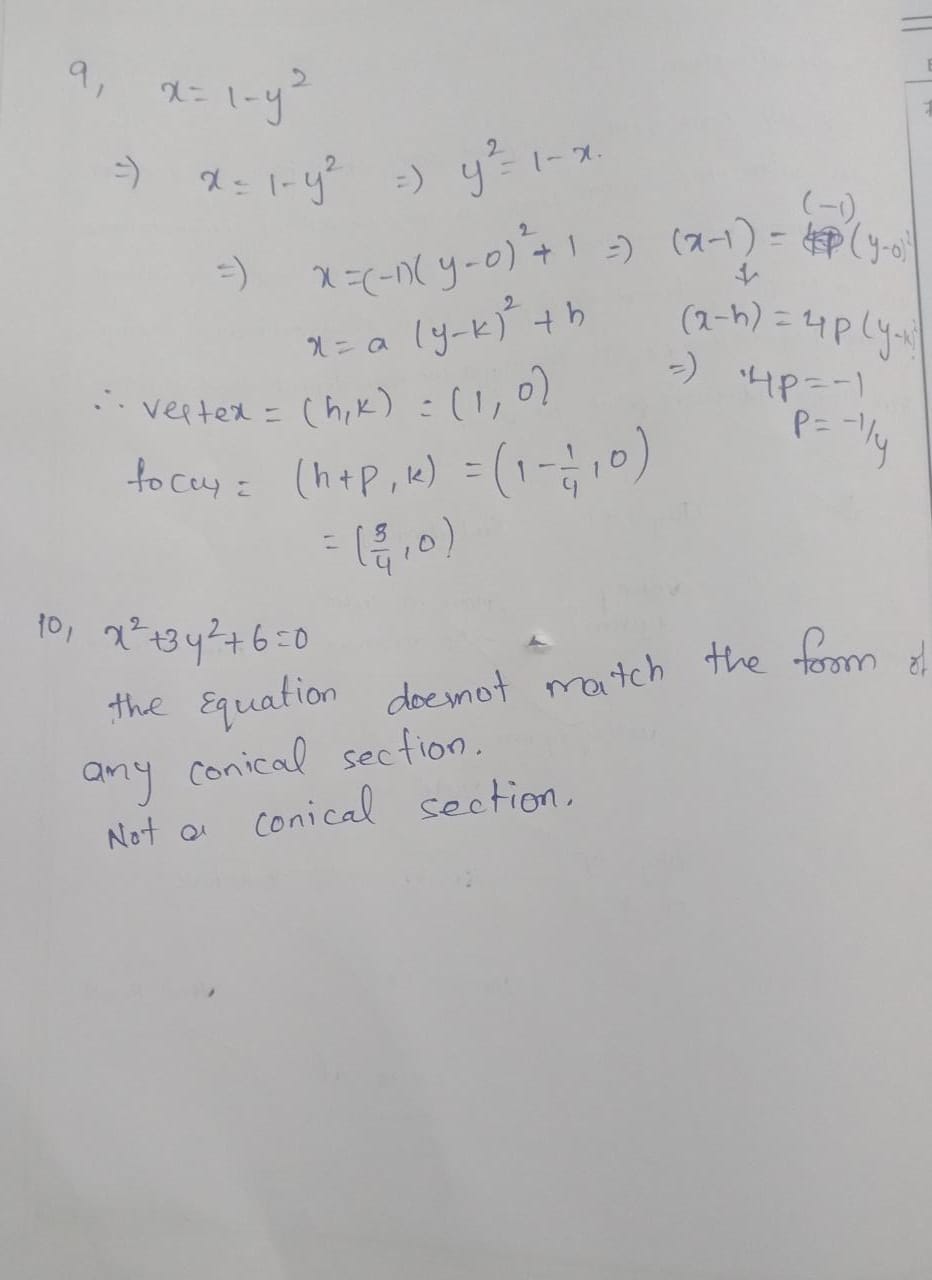 9, x = 1-y²
=> x = 1-y² => y² = 1-x.
=> x = (-1)(y-0)² + 1 => (x-1) = (-1)(y-0)²
x = a (y-k)² + h (x-h) = 4p(y-k)²
∴ vertex = (h,k) = (1, 0) => 4p = -1
p = -1/4
focus = (h+p, k) = (1 - 1/4, 0)
= (3/4, 0)
10, x²+3y²+6=0
the Equation doesnot match the form of
any conical section.
Not a conical section.